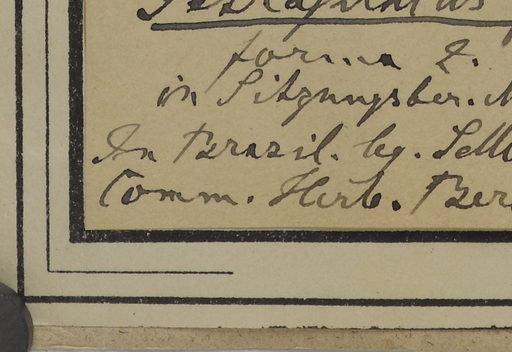 forma 2.
in Sitzungsber.
In Brazil. lg. Sello
Comm. Herb. Ber